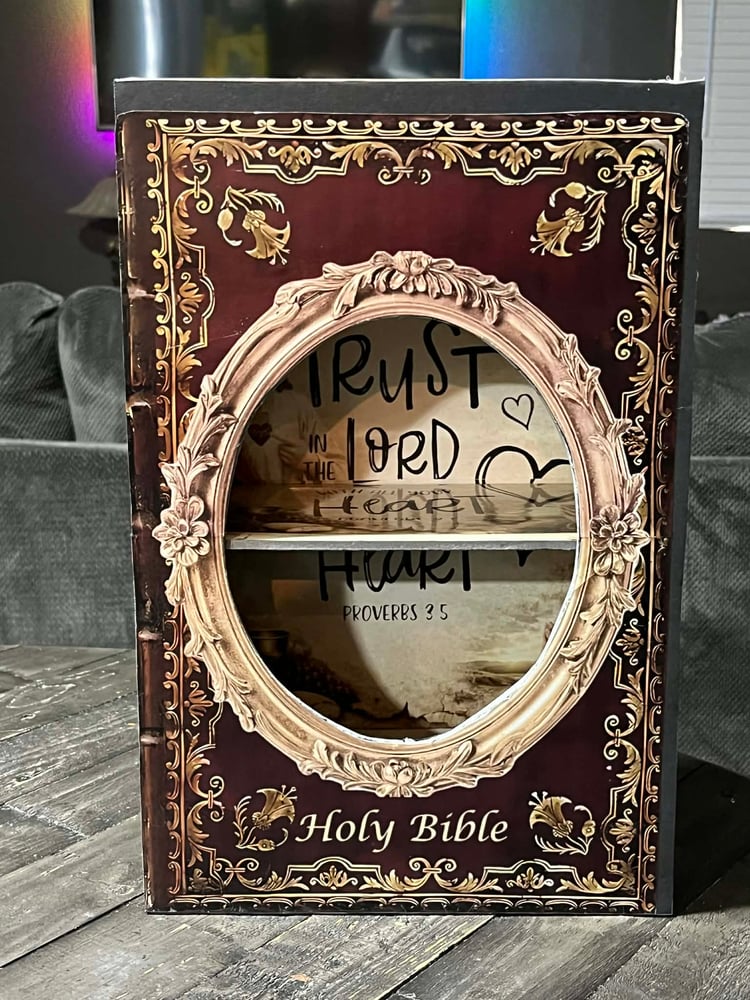 TRUST
IN THE LORD
Heart
PROVERBS 3 5
Holy Bible